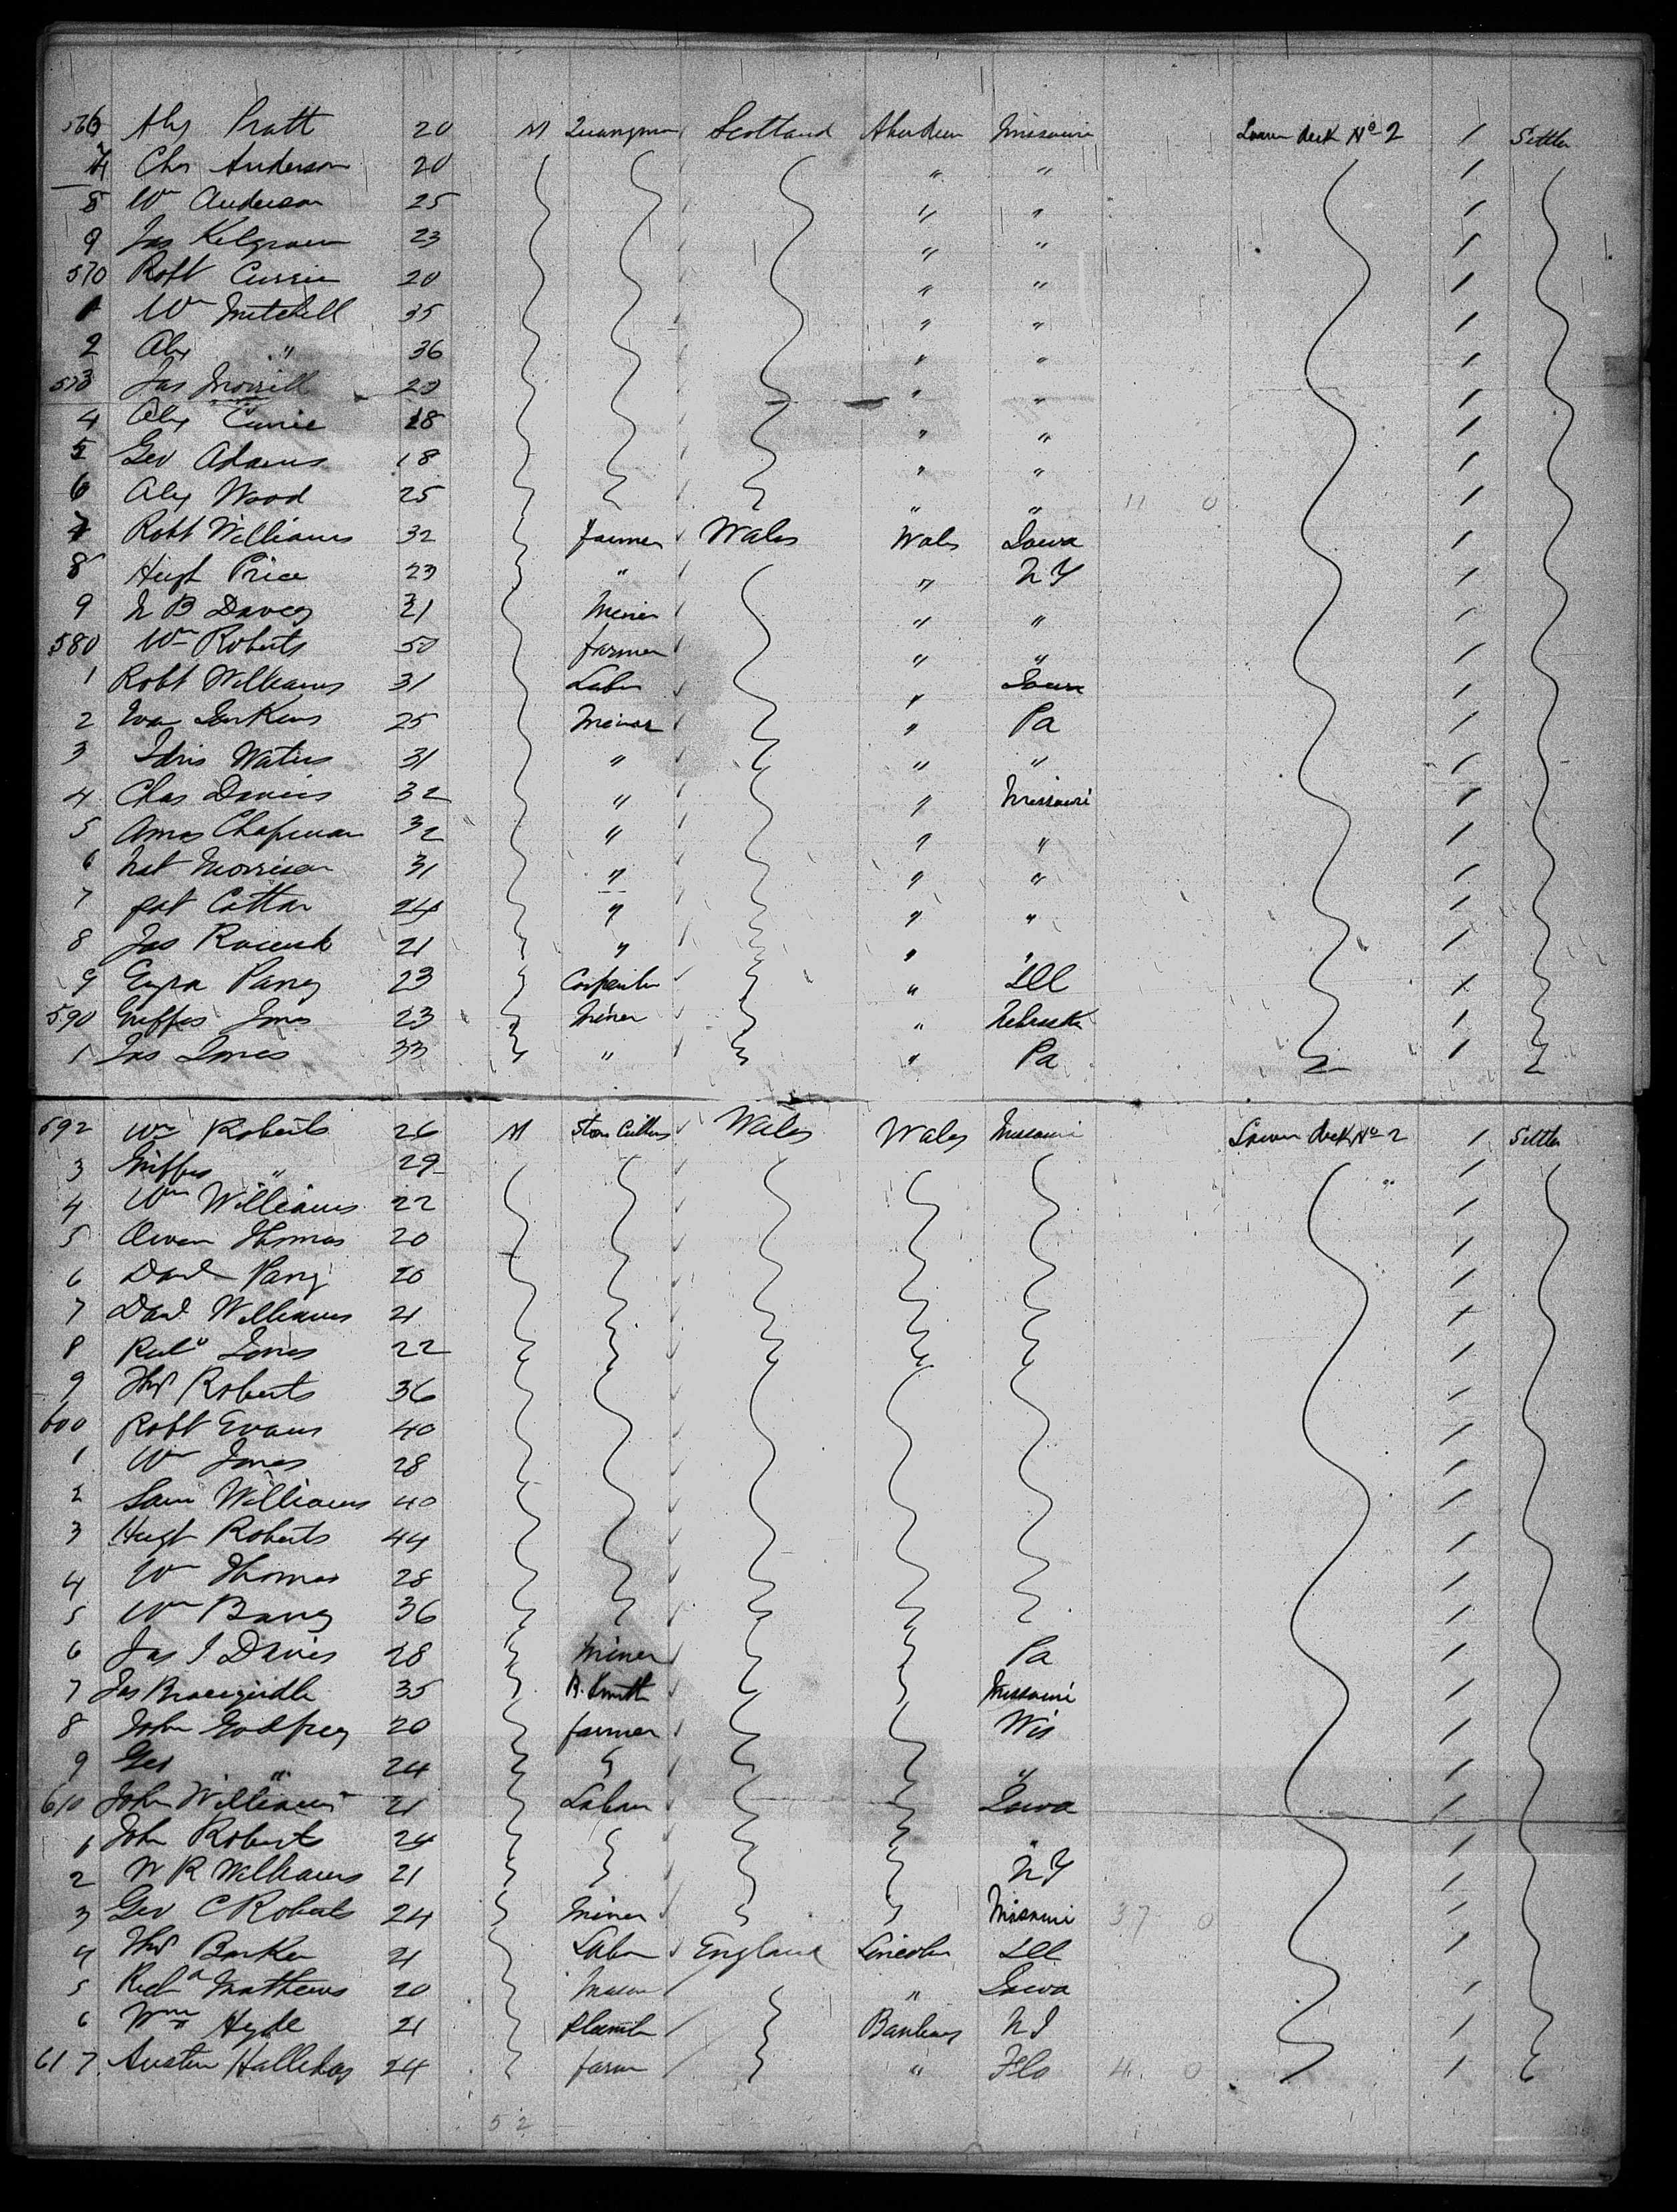 566 Alex Pratt 20 M Scotland Aberdeen Missouri Lower deck No 2 / Settler
7 Chas Anderson 20 " " /
8 Wm Anderson 25 " " /
9 Jas 23 " " /
570 Robt Currie 20 " " /
1 Wm Mitchell 35 " " /
2 Alex " 36 " " /
573 Jas Morrill 23 " " /
4 Alex Currie 18 " " /
5 Geo Adams 18 " " /
6 Alex Wood 25 " " 11 0 /
7 Robt Williams 32 farmer Wales Wales Iowa /
8 Hugh Price 23 " " N Y /
9 21 Miner " " /
580 Wm Roberts 50 farmer " " /
1 Robt Williams 31 Labr " Iowa /
2 Evan Jenkins 25 Miner " Pa /
3 Idris Waters 31 " " " /
4 Chas Davies 32 " " Missouri /
5 Amos Chapman 32 " " " /
6 Nat Morrison 31 " " " /
7 Pat 24 " " " /
8 Jas 21 " " " /
9 Parry 23 Carpenter " Ill /
590 Griffes Jones 23 Miner " Nebraska /
1 Jas Jones 33 " " Pa /
592 Wm Roberts 26 M Stone Cutters Wales Wales Missouri Lower deck No 2 / Settler
3 Griffes " 29 /
4 Wm Williams 22 /
5 Owen Thomas 20 /
6 Davd Parry 20 /
7 Davd Williams 21 /
8 Richd Jones 22 /
9 Thos Roberts 36 /
600 Robt Evans 40 /
1 Wm Jones 28 /
2 Sam Williams 40 /
3 Hugh Roberts 44 /
4 Wm Thomas 28 /
5 Wm 36 /
6 Jas J Davies 28 Miner Pa /
7 Jas 35 B. Smith Missouri /
8 John Godfrey 20 farmer Wis /
9 Geo " 24 " /
610 John Williams 21 Labour Iowa /
1 John Roberts 24 " /
2 W R Williams 21 N Y /
3 Geo C Roberts 24 Miner Missouri 37 0 /
4 Thos Barker 21 Labr England Lincoln Ill /
5 Richd Mathews 20 Mason " Iowa /
6 Wm Hyde 21 Plumb N J /
617 Austin 24 farm " Flo 4 0 /
52